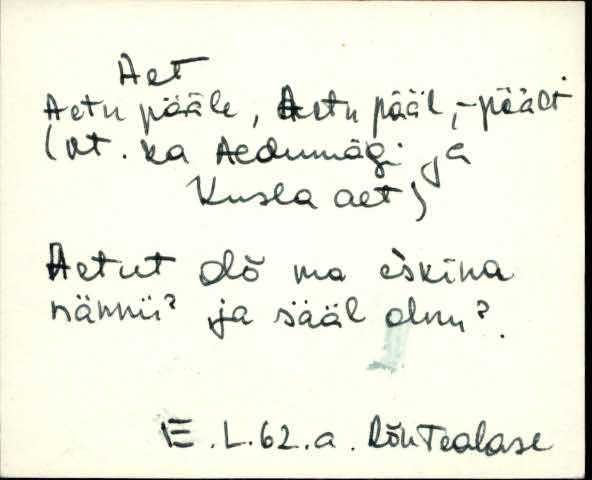 Aet
Aetu pääle, Aetu pääl, -päält
(vt. ka Aedumägi ja
Kusla aet)
Aetut olõ ma eśkina
nännü? ja sääl olnu?.
E. L. 62. a. Rõu